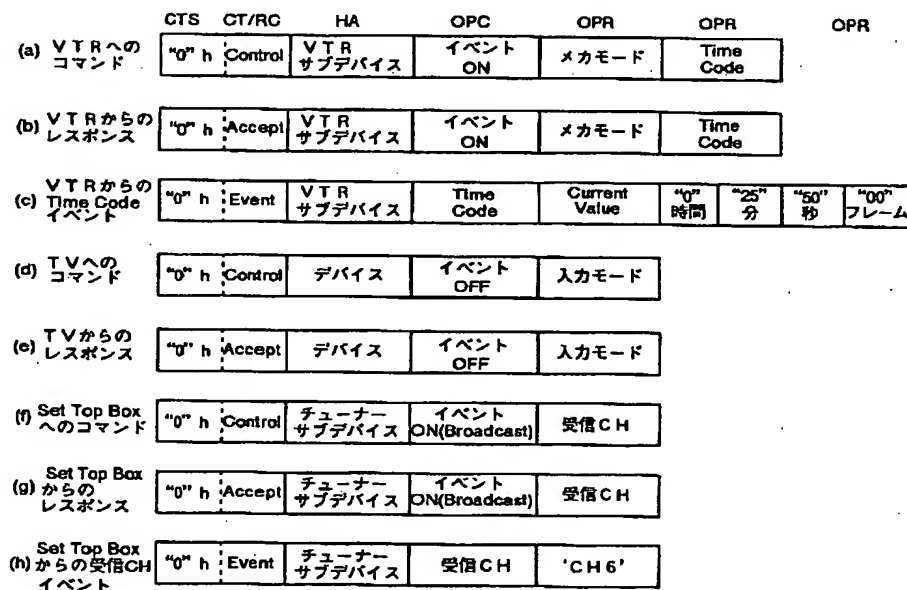 CTS CT/RC HA OPC OPR OPR OPR
(a) VTRへの
コマンド
"0" h Control VTR
サブデバイス イベント
ON メカモード Time
Code
(b) VTRからの
レスポンス
"0" h Accept VTR
サブデバイス イベント
ON メカモード Time
Code
(c) VTRからの
Time Code
イベント
"0" h Event VTR
サブデバイス Time
Code Current
Value "0"
時間 "25"
分 "50"
秒 "00"
フレーム
(d) TVへの
コマンド
"0" h Control デバイス イベント
OFF 入力モード
(e) TVからの
レスポンス
"0" h Accept デバイス イベント
OFF 入力モード
(f) Set Top Box
へのコマンド
"0" h Control チューナー
サブデバイス イベント
ON(Broadcast) 受信CH
(g) Set Top Box
からの
レスポンス
"0" h Accept チューナー
サブデバイス イベント
ON(Broadcast) 受信CH
(h) Set Top Box
からの受信CH
イベント
"0" h Event チューナー
サブデバイス 受信CH 'CH6'